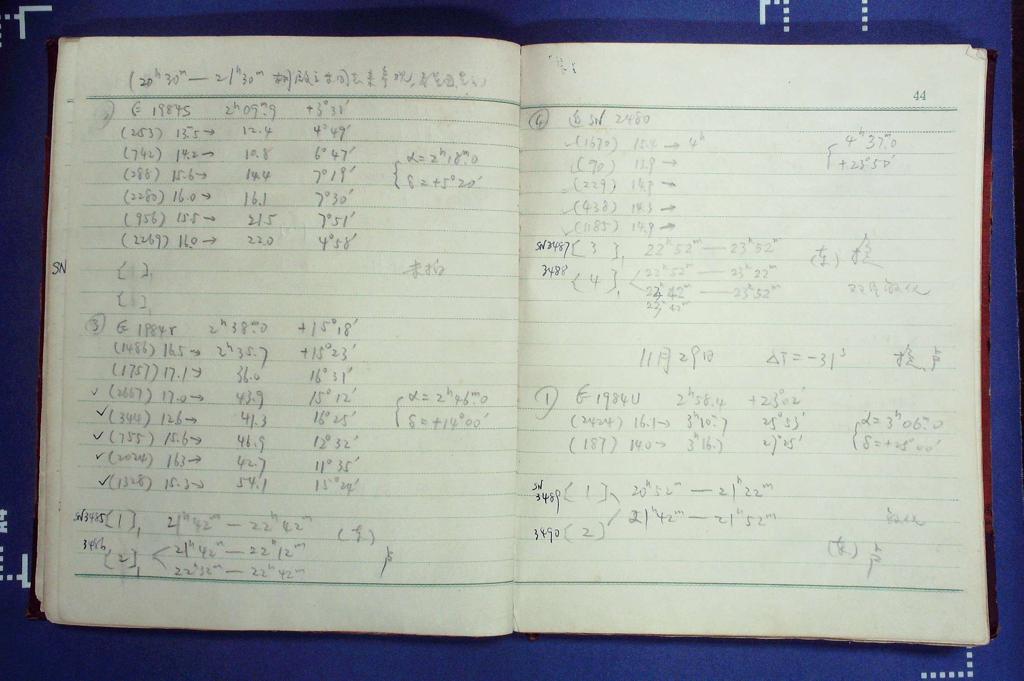 (20ʰ30ᵐ — 21ʰ30ᵐ
② E 1984S 2ʰ09ᵐ.9 +3°31′
(253) 13.5→ 12.4 4°49′
(742) 14.2→ 10.8 6°47′
(288) 15.6→ 14.4 7°19′
(2280) 16.0→ 16.1 7°30′
(956) 15.5→ 21.5 7°51′
(2269) 16.0→ 22.0 4°58′
{ α=2ʰ18ᵐ.0
δ=+5°20′
SN [ ], 未拍
[ ],
③ E 1984r 2ʰ38ᵐ.0 +15°18′
(1486) 16.5→ 2ʰ35.7 +15°23′
(1757) 17.1→ 36.0 16°31′
✓(2667) 17.0→ 43.9 15°12′
✓(344) 12.6→ 41.3 16°25′
✓(755) 15.6→ 46.9 12°32′
✓(2024) 16.3→ 42.7 11°35′
✓(1328) 15.3→ 54.1 15°24′
{ α=2ʰ46ᵐ.0
δ=+14°00′
SN3485 [1], 21ʰ42ᵐ — 22ʰ42ᵐ (东)
3486 [2], 21ʰ42ᵐ — 22ʰ12ᵐ
22ʰ32ᵐ — 22ʰ42ᵐ
44
④ SN 2480
✓(1670) 15.4→ 4ʰ
(90) 13.9→
✓(229) 14.9→
✓(438) 14.3→
✓(1185) 14.9→
{ 4ʰ37ᵐ.0
+23°50′
SN3487 [3], 22ʰ52ᵐ — 23ʰ52ᵐ (东)
3488 [4], 22ʰ52ᵐ — 23ʰ22ᵐ
23ʰ42ᵐ — 23ʰ52ᵐ
11月29日 ΔT=-31ˢ
① E 1984U 2ʰ58.4 +23°02′
(2424) 16.1→ 3ʰ10ᵐ.7 25°53′
(187) 14.0→ 3ʰ16.7 27°25′
{ α=3ʰ06ᵐ.0
δ=+25°00′
SN 3489 [1] 20ʰ52ᵐ — 21ʰ22ᵐ
3490 [2] 21ʰ42ᵐ — 21ʰ52ᵐ
(东)